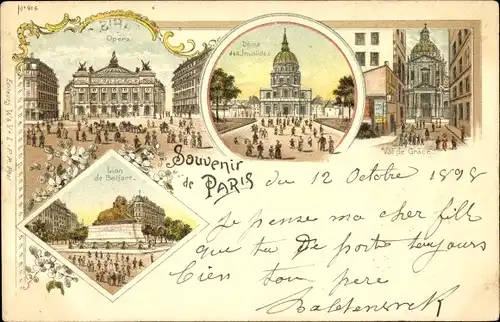 No 906
Opéra
Dôme
des Invalides
Val de Grâce
Lion
de Belfort
Souvenir
de PARIS
du 12 Octobre 1898
Je pense ma cher fille
que tu de porte toujours
bien ton père